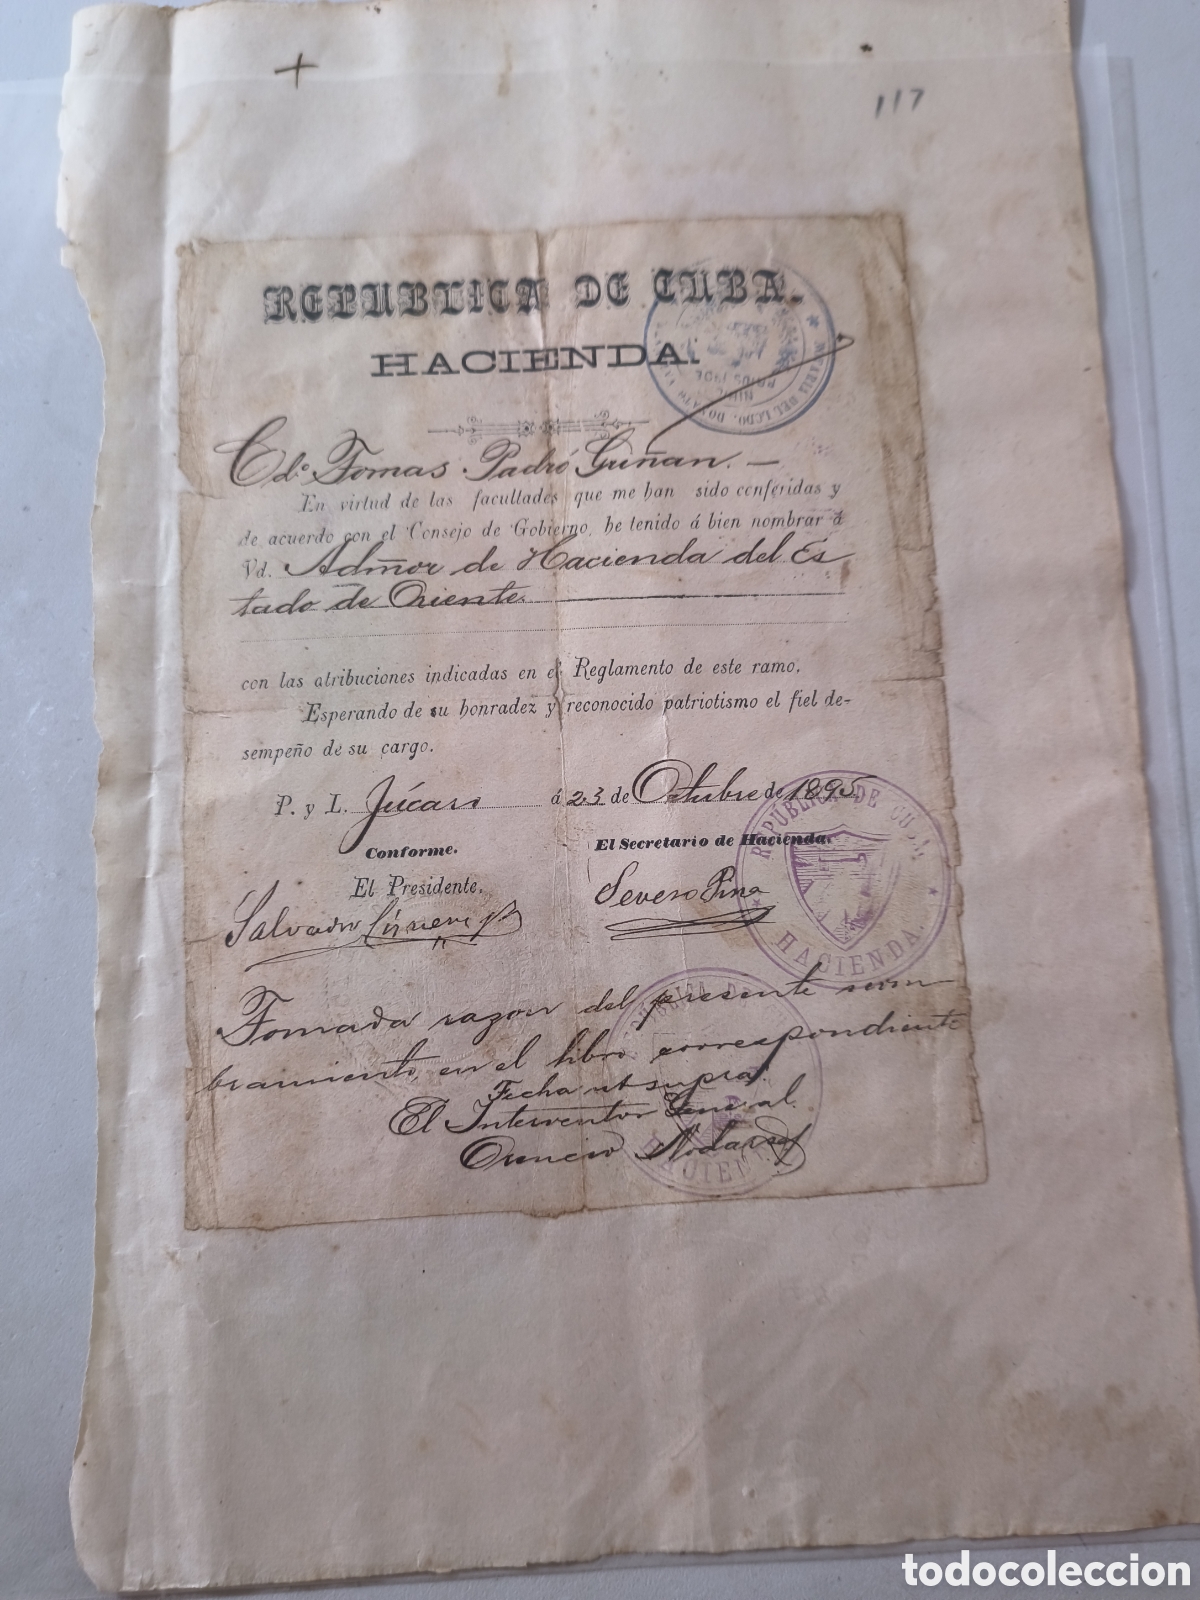 117
REPUBLICA DE CUBA.
HACIENDA.
NOTARIA DEL LCDO.
Cdº Tomas Padró Griñan. —
En virtud de las facultades que me han sido conferidas y
de acuerdo con el Consejo de Gobierno, he tenido á bien nombrar á
Vd. Admñor de Hacienda del Es
tado de Oriente.
con las atribuciones indicadas en el Reglamento de este ramo.
Esperando de su honradez y reconocido patriotismo el fiel de-
sempeño de su cargo.
P. y L. Júcaro á 23 de Octubre de 1895
Conforme. El Secretario de Hacienda.
El Presidente. Severo Pina
Salvador Cisneros
REPUBLICA DE CUBA
HACIENDA.
Tomada razon del presente nom
bramiento, en el libro correspondiente
Fecha ut supra.
El Interventor General
Orencio Nodarse
REPUBLICA DE
HACIENDA
todocoleccion